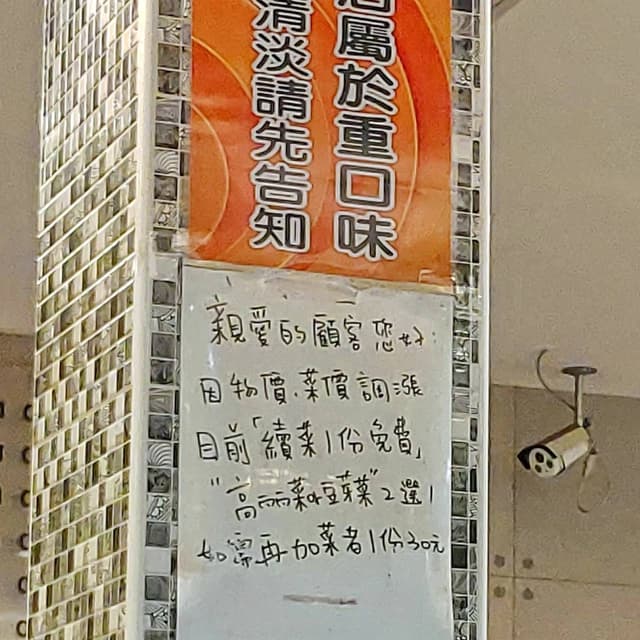 屬於重口味
清淡請先告知
親愛的顧客您好:
因物價、菜價調漲
目前「續菜1份免費」
"高麗菜or豆芽菜"2選1
如需再加菜者1份30元